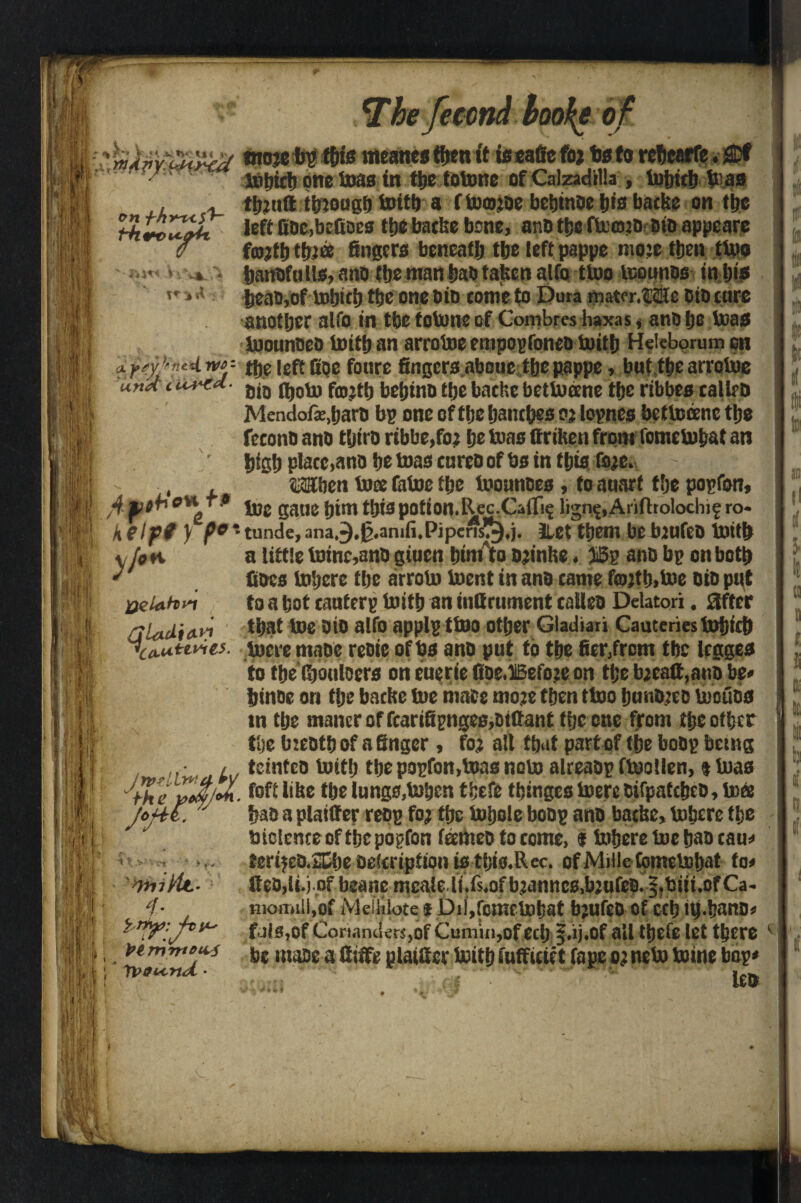 The second booke of
more by this meanes then it is easie for vs to rehearse. Of
which one was in the towne of Calzadilla, which was
thrust through with a sworde behinde his backe on the
left side, besides the backe bone, and the sword did appeare
foorth three fingers beneath the left pappe more then two
handfulls, and the man had taken also two wounds in his
head, of which the one did come to Dura mater. We did cure
another also in the towne of Combres haxas, and he was
wounded with an arrowe empoysoned with Heleborum on
the left side foure fingers aboue the pappe, but the arrowe
did show foorth behind the backe betweene the ribbes called
Mendosæ, hard by one of the hanches or loynes betweene the
second and third ribbe, for he was striken from somewhat an
high place, and he was cured of vs in this sore.
When wee sawe the woundes, to auart the poyson,
we gaue him this potion. Rec. Cassię lignę, Aristrolochię ro-
tunde, ana.Ʒ.ß. anisi. Piperis.Ʒ.j. Let them be brused with
a little wine, and giuen him to drinke. By and by on both
sides where the arrow went in and came foorth, we did put
to a hot cautery with an instrument called Delatori. After
that we did also apply two other Gladiari Cauteries which
were made redie of vs and put to the fier, from the legges
to the shoulders on euerie side. Before on the breast, and be-
hinde on the backe we made more then two hundred woūds
in the maner of scarifiynges, distant the one from the other
the bredth of a finger, for all that part of the body being
teinted with the poyson, was now already swollen, & was
soft like the lungs, when these thinges were dispatched, wee
had a plaister redy for the whole body and backe, where the
violence of the poyson seemed to come, & where we had cau-
terized. The description is this. Rec. of Mille somewhat to-
sted, li.j of beane meale li.ss. of brannes, brused. ℥.viii. of Ca-
momill, of Mellilote & Dil, somewhat brused of ech iij. hand-
fuls, of Corianders, of Cumin, of ech ℥.ij. of all these let there
be made a stiffe plaister with sufficiēt sape or new wine boy-
led
on thrust
through
a poysned wo-
und cured.
A potion to
helpe ye poy-
son
Delatori
Gladiari
cauteries.
swellind by
the poyson.
softe.
Wound.